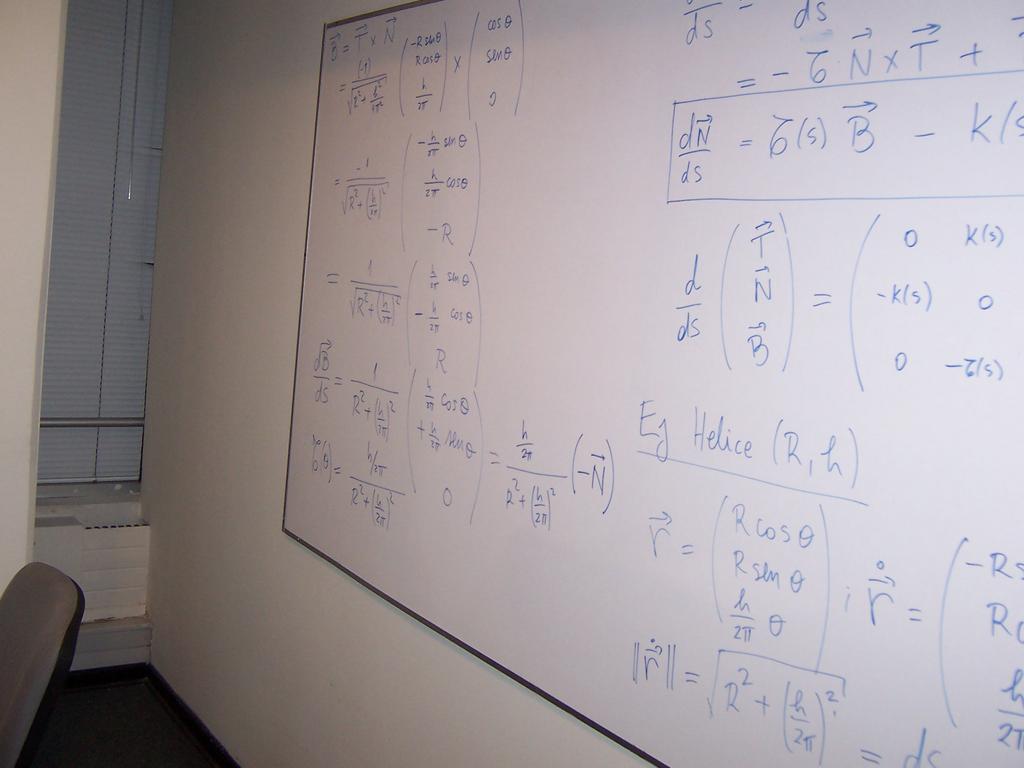 B⃗ = T⃗ × N⃗
= (-1)/√(R² + h²/4π²) (-R senθ, R cosθ, h/2π) × (cosθ, senθ, 0)
= 1/√(R² + (h/2π)²) (-h/2π senθ, h/2π cosθ, -R)
= 1/√(R² + (h/2π)²) (h/2π senθ, -h/2π cosθ, R)
dB⃗/ds = 1/(R² + (h/2π)²) (h/2π cosθ, +h/2π senθ, 0) = (h/2π)/(R² + (h/2π)²) (-N⃗)
τ(θ) = (h/2π)/(R² + (h/2π)²)
ds = ds
= - τ N⃗ × T⃗ +
dN⃗/ds = τ(s) B⃗ - k(s
d/ds (T⃗, N⃗, B⃗) = (0 k(s)
-k(s) 0
0 -τ(s)
Ej Helice (R, h)
r⃗ = (R cosθ, R sen θ, h/2π θ) ; ṙ⃗ = (-Rs
R
h/2π
‖ṙ⃗‖ = √(R² + (h/2π)²)
= ds